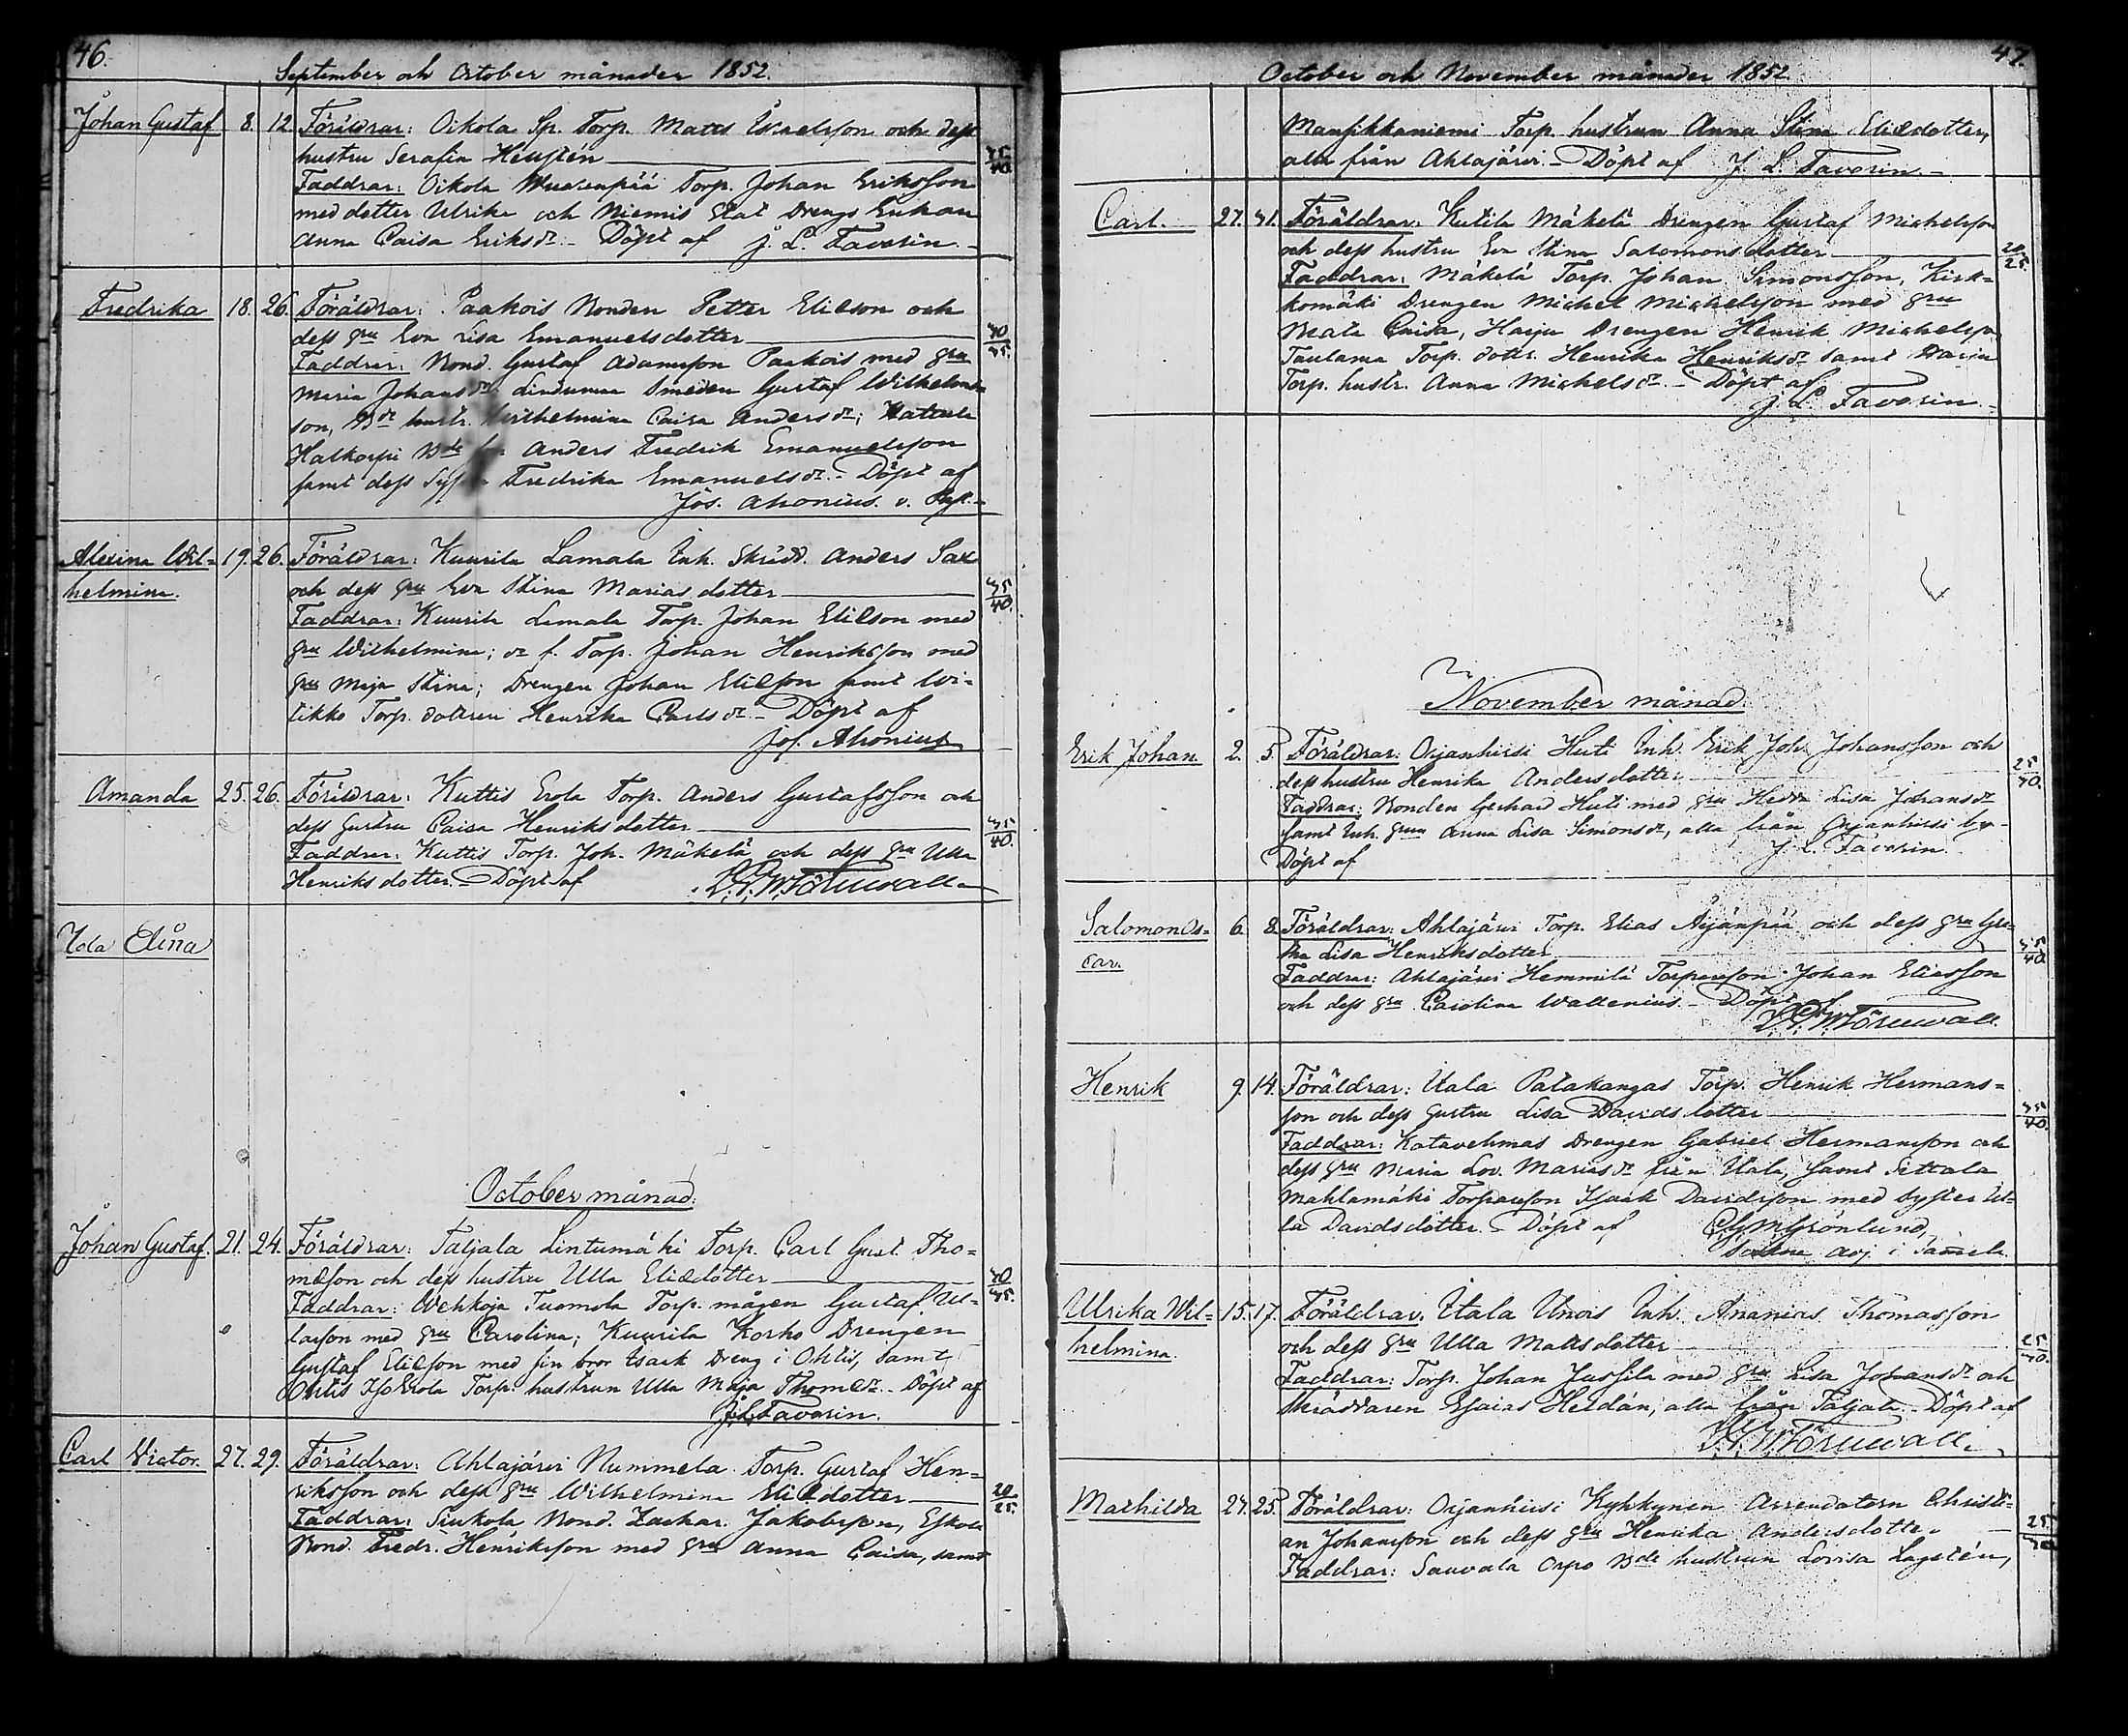 46.
September och October månader 1852.
Johan Gustaf 8. 12. Föräldrar: Oikola Sp. Torp. Matts Israelsson och dess
hustru Serafia Heustén 35/40
Faddrar: Oikola Torp. Johan Eriksson
med dotter Ulrika och Niemis Stat Drengs Enkan
Anna Caisa Eriksdr. Döpt af J. L. Favorin.
Fredrika 18. 26. Föräldrar: Paakois Bonden Petter Eliæson och
dess hru Eva Lisa Emanuelsdotter 30/35.
Faddrar: Bond. Gustaf Adamsson Paakois med hru
Maria Johansdr. Smeden Gustaf Wilhelms-
son, Bde hustr. Wilhelmina Caisa Andersdr; Hattula
Halkorpi Bde Anders Fredrik Emanuelsson
samt dess Fredrika Emanuelsdr. Döpt af
Jos. Ahonius. v. Past.
Alexina Wil= 19. 26. Föräldrar: Kuurila Lamala Inh. Skrädd. Anders Sax
helmina. och dess hru Eva Stina Mariasdotter 35/40.
Faddrar: Kuurila Lamala Torp. Johan Eliæson med
hru Wilhelmina; dr f. Torp. Johan Henriksson med
hru Maja Stina; Drengen Johan Eliæson samt Wi=
tikko Torp. dottren Henrika Carlsdr. Döpt af
Jos. Ahonius
Amanda 25. 26. Föräldrar: Kuttis Erola Torp. Anders Gustafsson och
dess hustru Caisa Henriksdotter 35/40.
Faddrar: Kuttis Torp. Joh. Mäkelä och dess hru Ulla
Henriksdotter. Döpt af K. F. W. Törnwall
Ida Elina
October månad.
Johan Gustaf. 21. 24. Föräldrar: Taljala Lintumäki Torp. Carl Gust. Tho=
mæson och dess hustru Ulla Eliædotter 30/35.
Faddrar: Wehkoja Tuomola Torp. mågen Gustaf Ul=
lasson med hru Carolina; Kuurila Korho Drengen
Gustaf Eliæson med sin bror Isaak Dreng i Ohtis, samt
Ohtis Iso Erola Torp. hustrun Ulla Maja Thomædr. Döpt af
J. L. Favorin.
Carl Victor. 27. 29. Föräldrar: Ahlajärvi Nummela Torp. Gustaf Hen=
riksson och dess hru Wilhelmina Eliædotter 20/25.
Faddrar: Sinkola Bond. Zachar. Jakobsson, Eskola
Bond. Fredr. Henriksson med hru Anna Caisa, samt
47.
October och November månader 1852
Mansikkaniemi Torp. hustrun Anna Stina Eliædotter,
alla från Ahlajärvi. Döpt af J. L. Favorin.
Carl. 27. 31. Föräldrar: Kutila Mäkelä Drengen Gustaf Michelsson
och dess hustru Eva Stina Salomonsdotter 20/25.
Faddrar: Mäkelä Torp. Johan Simonsson, Kirk=
komäki Drengen Michel Michelsson med hru
Beata Caisa, Harju Drengen Henrik Michelsson
Taulama Torp. dottr. Henrika Henriksdr samt Harju
Torp. hustr. Anna Michelsdr. Döpt af
J. L. Favorin.
November månad.
Erik Johan. 2. 5. Föräldrar: Orjanhirsi Huti Inh. Erik Joh. Johansson och
dess hustru Henrika Andersdotter 25/30.
Faddrar: Bonden Gerhard Huti med hru Hedda Lisa Johansdr
samt Inh. hrun Anna Lisa Simonsdr, alla från Orjanhirsi by.
Döpt af J. L. Favorin.
Salomon Os= 6. 8. Föräldrar: Ahlajärvi Torp. Elias Äijänpää och dess hru
car. Lisa Henriksdotter 35/40.
Faddrar: Ahlajärvi Hemmilä Torparsson Johan Eliasson
och dess hru Carolina Wallenius. Döpt af
K. F. W. Törnwall.
Henrik 9. 14. Föräldrar: Uala Patakangas Torp. Henrik Hermans=
son och dess hustru Lisa Davidsdotter 35/40.
Faddrar: Katavehmas Drengen Gabriel Hermansson och
dess hru Maria Lov. Mariasdr från Uala, samt
Mahlamäki Torparsson Isaak Davidsson med syster Ul=
la Davidsdotter. Döpt af C. G. M. Grönlund,
adj. i Tammela.
Ulrika Wil= 15. 17. Föräldrar. Itala Unois Inh. Ananias Thomasson
helmina. och dess hru Ulla Mattsdotter 25/30.
Faddrar: Torp. Johan Jussila med hru Lisa Johansdr och
Skräddaren Esaias Heldán, alla från Taljala. Döpt af
K. F. W. Törnwall.
Mathilda 24. 25. Föräldrar: Orjanhirsi Kyhkynen Arrendatorn Christi=
an Johansson och dess hru Henrika Andersdotter 25/30
Faddrar: Sauvala Orpo Bde hustrun Lovisa Lagstén,